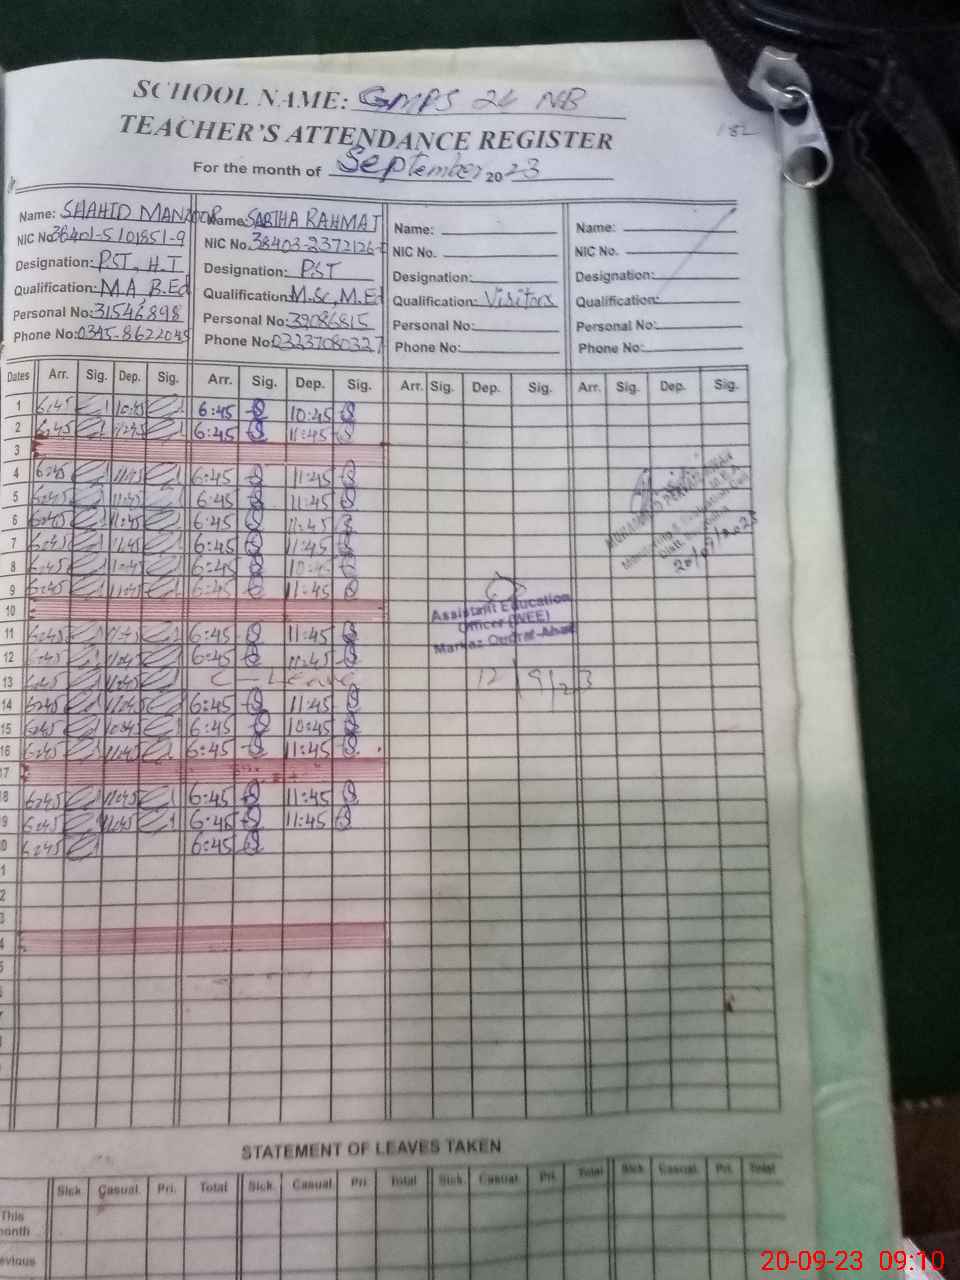 SCHOOL NAME: GMPS 24 NB
TEACHER'S ATTENDANCE REGISTER
182
For the month of September 2023
Name: SHAHID MANZOOR Name: SABIHA RAHMAT Name: Name:
NIC No. 38401-5101851-9 NIC No. 38403-2372126- NIC No. NIC No.
Designation: PST, H.T Designation: PST Designation: Designation:
Qualification: M.A, B.Ed Qualification: M.Sc, M.Ed Qualification: Visitors Qualification:
Personal No: 31546898 Personal No: 39086815 Personal No: Personal No:
Phone No: 0345-8622045 Phone No: 03237080327 Phone No: Phone No:
Dates Arr. Sig. Dep. Sig. Arr. Sig. Dep. Sig. Arr. Sig. Dep. Sig. Arr. Sig. Dep. Sig.
1 6:45 10:45 6:45 10:45
2 6:45 11:45 6:45 11:45
3
4 6:45 11:45 6:45 11:45
5 6:45 11:45 6:45 11:45
6 6:45 11:45 6:45 11:45
7 6:45 11:45 6:45 11:45
8 6:45 10:45 6:45 10:45
9 6:45 11:45 6:45 11:45
10
11 6:45 11:45 6:45 11:45
12 6:45 11:45 6:45 11:45
13 6:45 11:45 C - Leave
14 6:45 11:45 6:45 11:45
15 6:45 10:45 6:45 10:45
16 6:45 11:45 6:45 11:45
17
18 6:45 11:45 6:45 11:45
19 6:45 11:45 6:45 11:45
0 6:45 6:45
1
2
3
4
5
Monitoring & Evaluation
20/09/2023
Assistant Education
Officer (WEE)
Markaz
12/9/23
STATEMENT OF LEAVES TAKEN
Sick. Casual. Pri. Total Sick. Casual Pri Total Sick. Casual Pri. Total Sick Casual. Pri. Total
This
month
evious
20-09-23 09:10